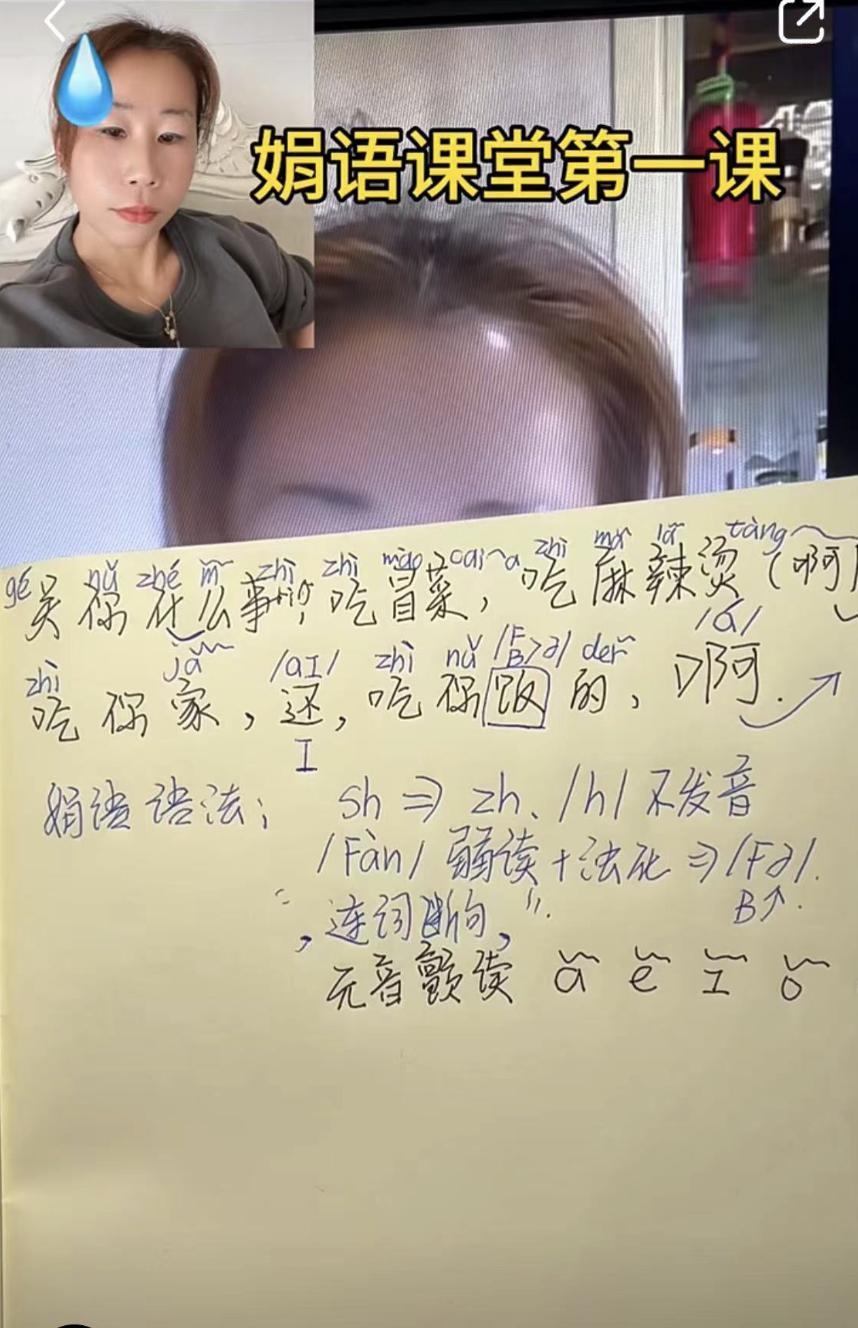 娟语课堂第一课
gé nǔ zhé m zhì zhì mào cai~a zhì má là tàng
关你什么事, 吃冒菜, 吃麻辣烫(啊
zhì jǎ /aI/ zhì nǔ /F>ə/ der /á/
B
吃你家, 还, 吃你饭的, 啊.
I
娟语语法: sh ⇒ zh、/h/ 不发音
/Fàn/ 弱读+浊化 ⇒ /Fə/.
B↑.
“, 连词断句, ”.
元音颤读 a e I o